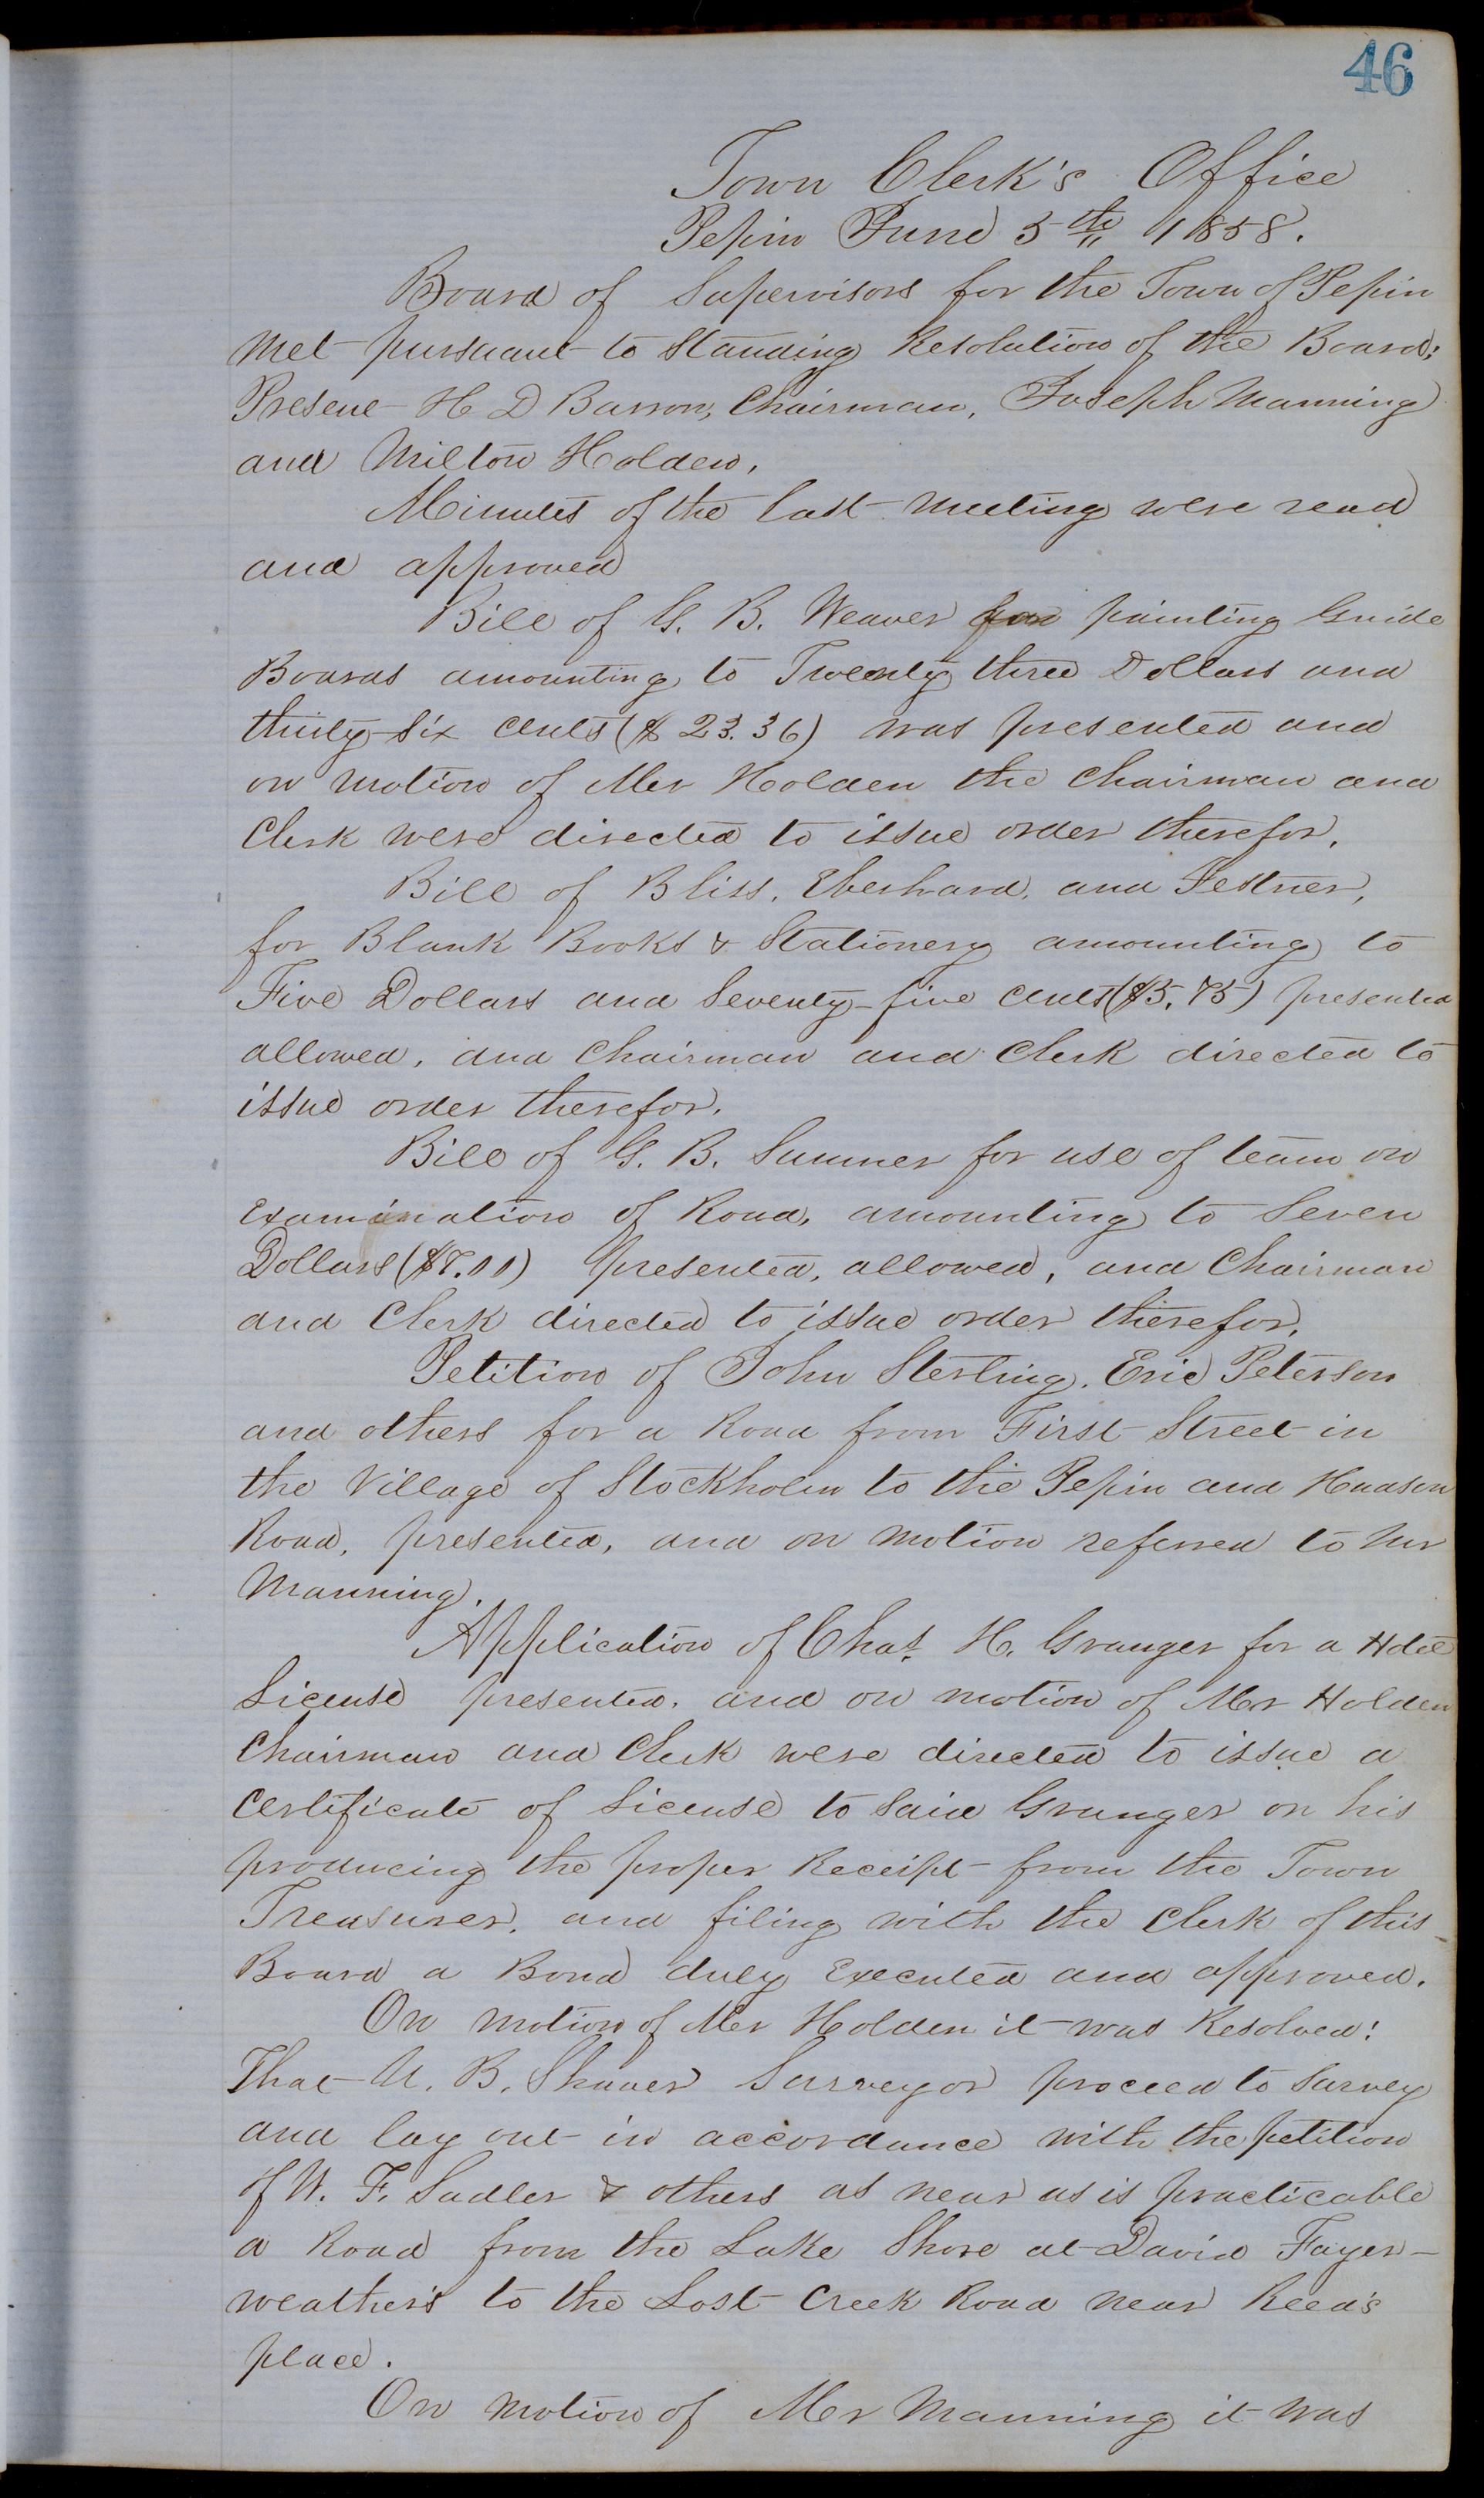 46
Town Clerk's Office
Pepin June 5th 1858.
Board of Supervisors for the Town of Pepin
met pursuant to Standing Resolution of the Board;
Present H D Barron, Chairman, Joseph Manning
and Milton Holden,
Minutes of the last meeting were read
and approved
Bill of G. B. Weaver for painting Guide
Boards amounting to Twenty three Dollars and
thirty six cents ($ 23.36) was presented and
on motion of Mr Holden the Chairman and
Clerk were directed to issue order therefor,
Bill of Bliss, Eberhard, and Festner,
for Blank Books & Stationery amounting to
Five Dollars and Seventy-five cents ($5.75) presented
allowed, and Chairman and Clerk directed to
issue order therefor.
Bill of G. B. Sumner for use of team on
Examination of Road, amounting to Seven
Dollars ($7.00) presented, allowed, and Chairman
and Clerk directed to issue order therefor,
Petition of John Sterling, Eric Peterson
and others for a Road from First Street in
the Village of Stockholm to the Pepin and Hudson
Road, presented, and on motion referred to Mr
Manning.
Application of Chas. H. Granger for a Hotel
License presented, and on motion of Mr Holden
Chairman and Clerk were directed to issue a
Certificate of License to said Granger on his
producing the proper Receipt from the Town
Treasurer, and filing with the Clerk of this
Board a Bond duly Executed and approved.
On motion of Mr Holden it was Resolved:
That U. B. Shaver Surveyor proceed to survey
and lay out in accordance with the petition
of W. F. Sadler & others as near as is practicable
a Road from the Lake Shore at David Fayer-
weather's to the Lost Creek Road near Reed's
place.
On motion of Mr Manning it was